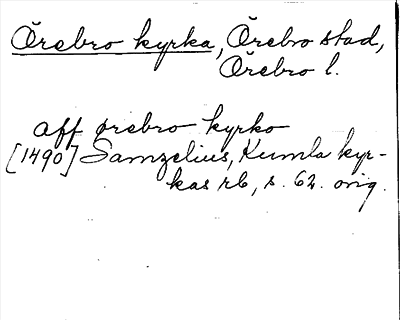 Örebro kyrka, Örebro stad,
Örebro l.
aff ørebro kyrko
[1490] Samzelius, Kumla kyr-
kas rb, s. 62. orig.